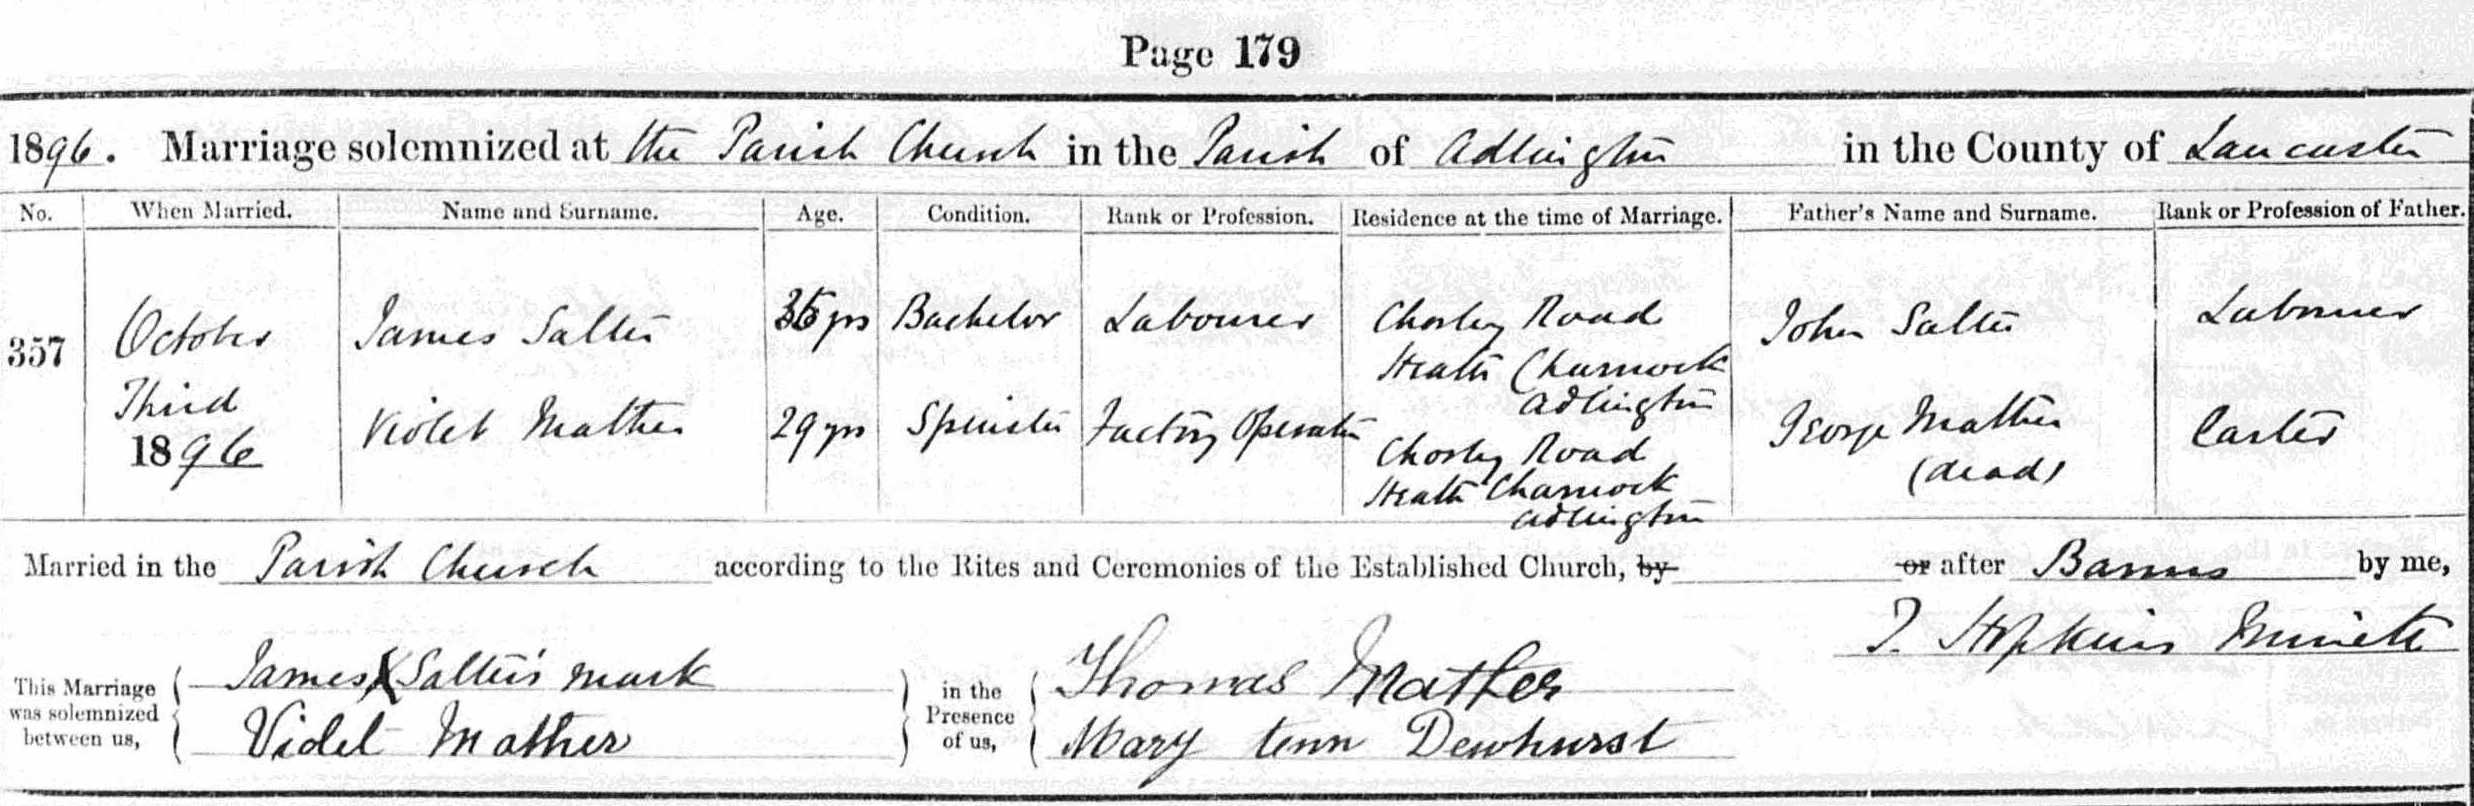 Page 179
1896. Marriage solemnized at the Parish Church in the Parish of Adlington in the County of Lancaster
No. When Married. Name and Surname. Age. Condition. Rank or Profession. Residence at the time of Marriage. Father's Name and Surname. Rank or Profession of Father.
357 October Third 1896
James Salter 35 yrs Bachelor Labourer Chorley Road Heath Charnock Adlington John Salter Labourer
Violet Mather 29 yrs Spinster Factory Operative Chorley Road Heath Charnock Adlington George Mather (dead) Carter
Married in the Parish Church according to the Rites and Ceremonies of the Established Church, by or after Banns by me,
T. Hopkins
This Marriage was solemnized between us, James X Salter's mark
Violet Mather
in the Presence of us, Thomas Mather
Mary Dewhurst